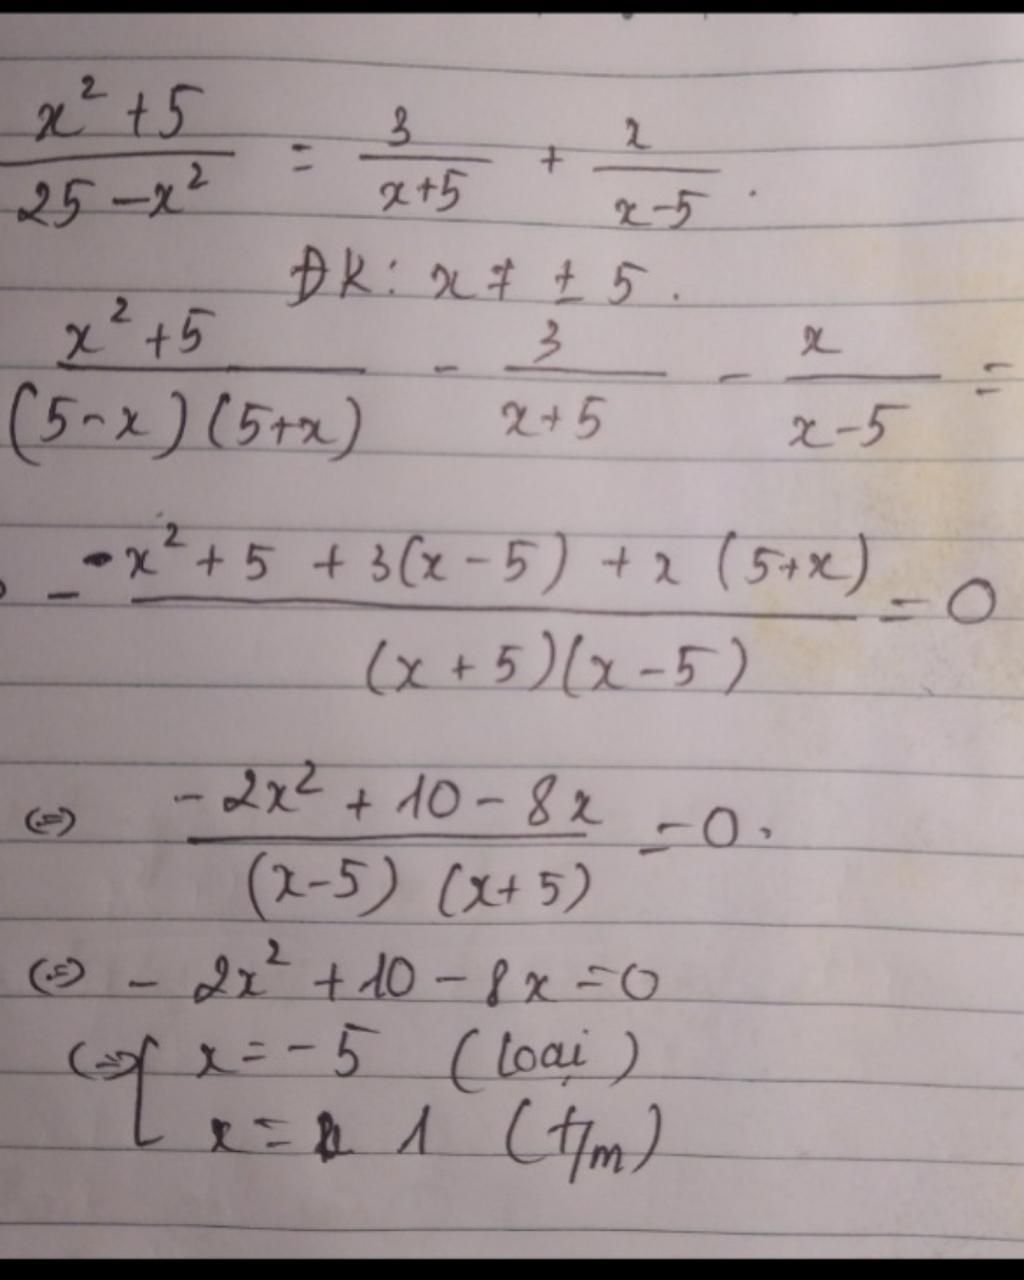 x² + 5 / 25 - x² = 3 / x+5 + x / x-5 .
ĐK: x ≠ ± 5 .
x² + 5 / (5-x)(5+x) - 3 / x+5 - x / x-5 =
- -x² + 5 + 3(x-5) + x (5+x) / (x+5)(x-5) = 0
(=) -2x² + 10 - 8x / (x-5) (x+5) = 0 .
(=) - 2x² + 10 - 8x = 0
(=) [ x = -5 (loại)
x = 1 (t/m)